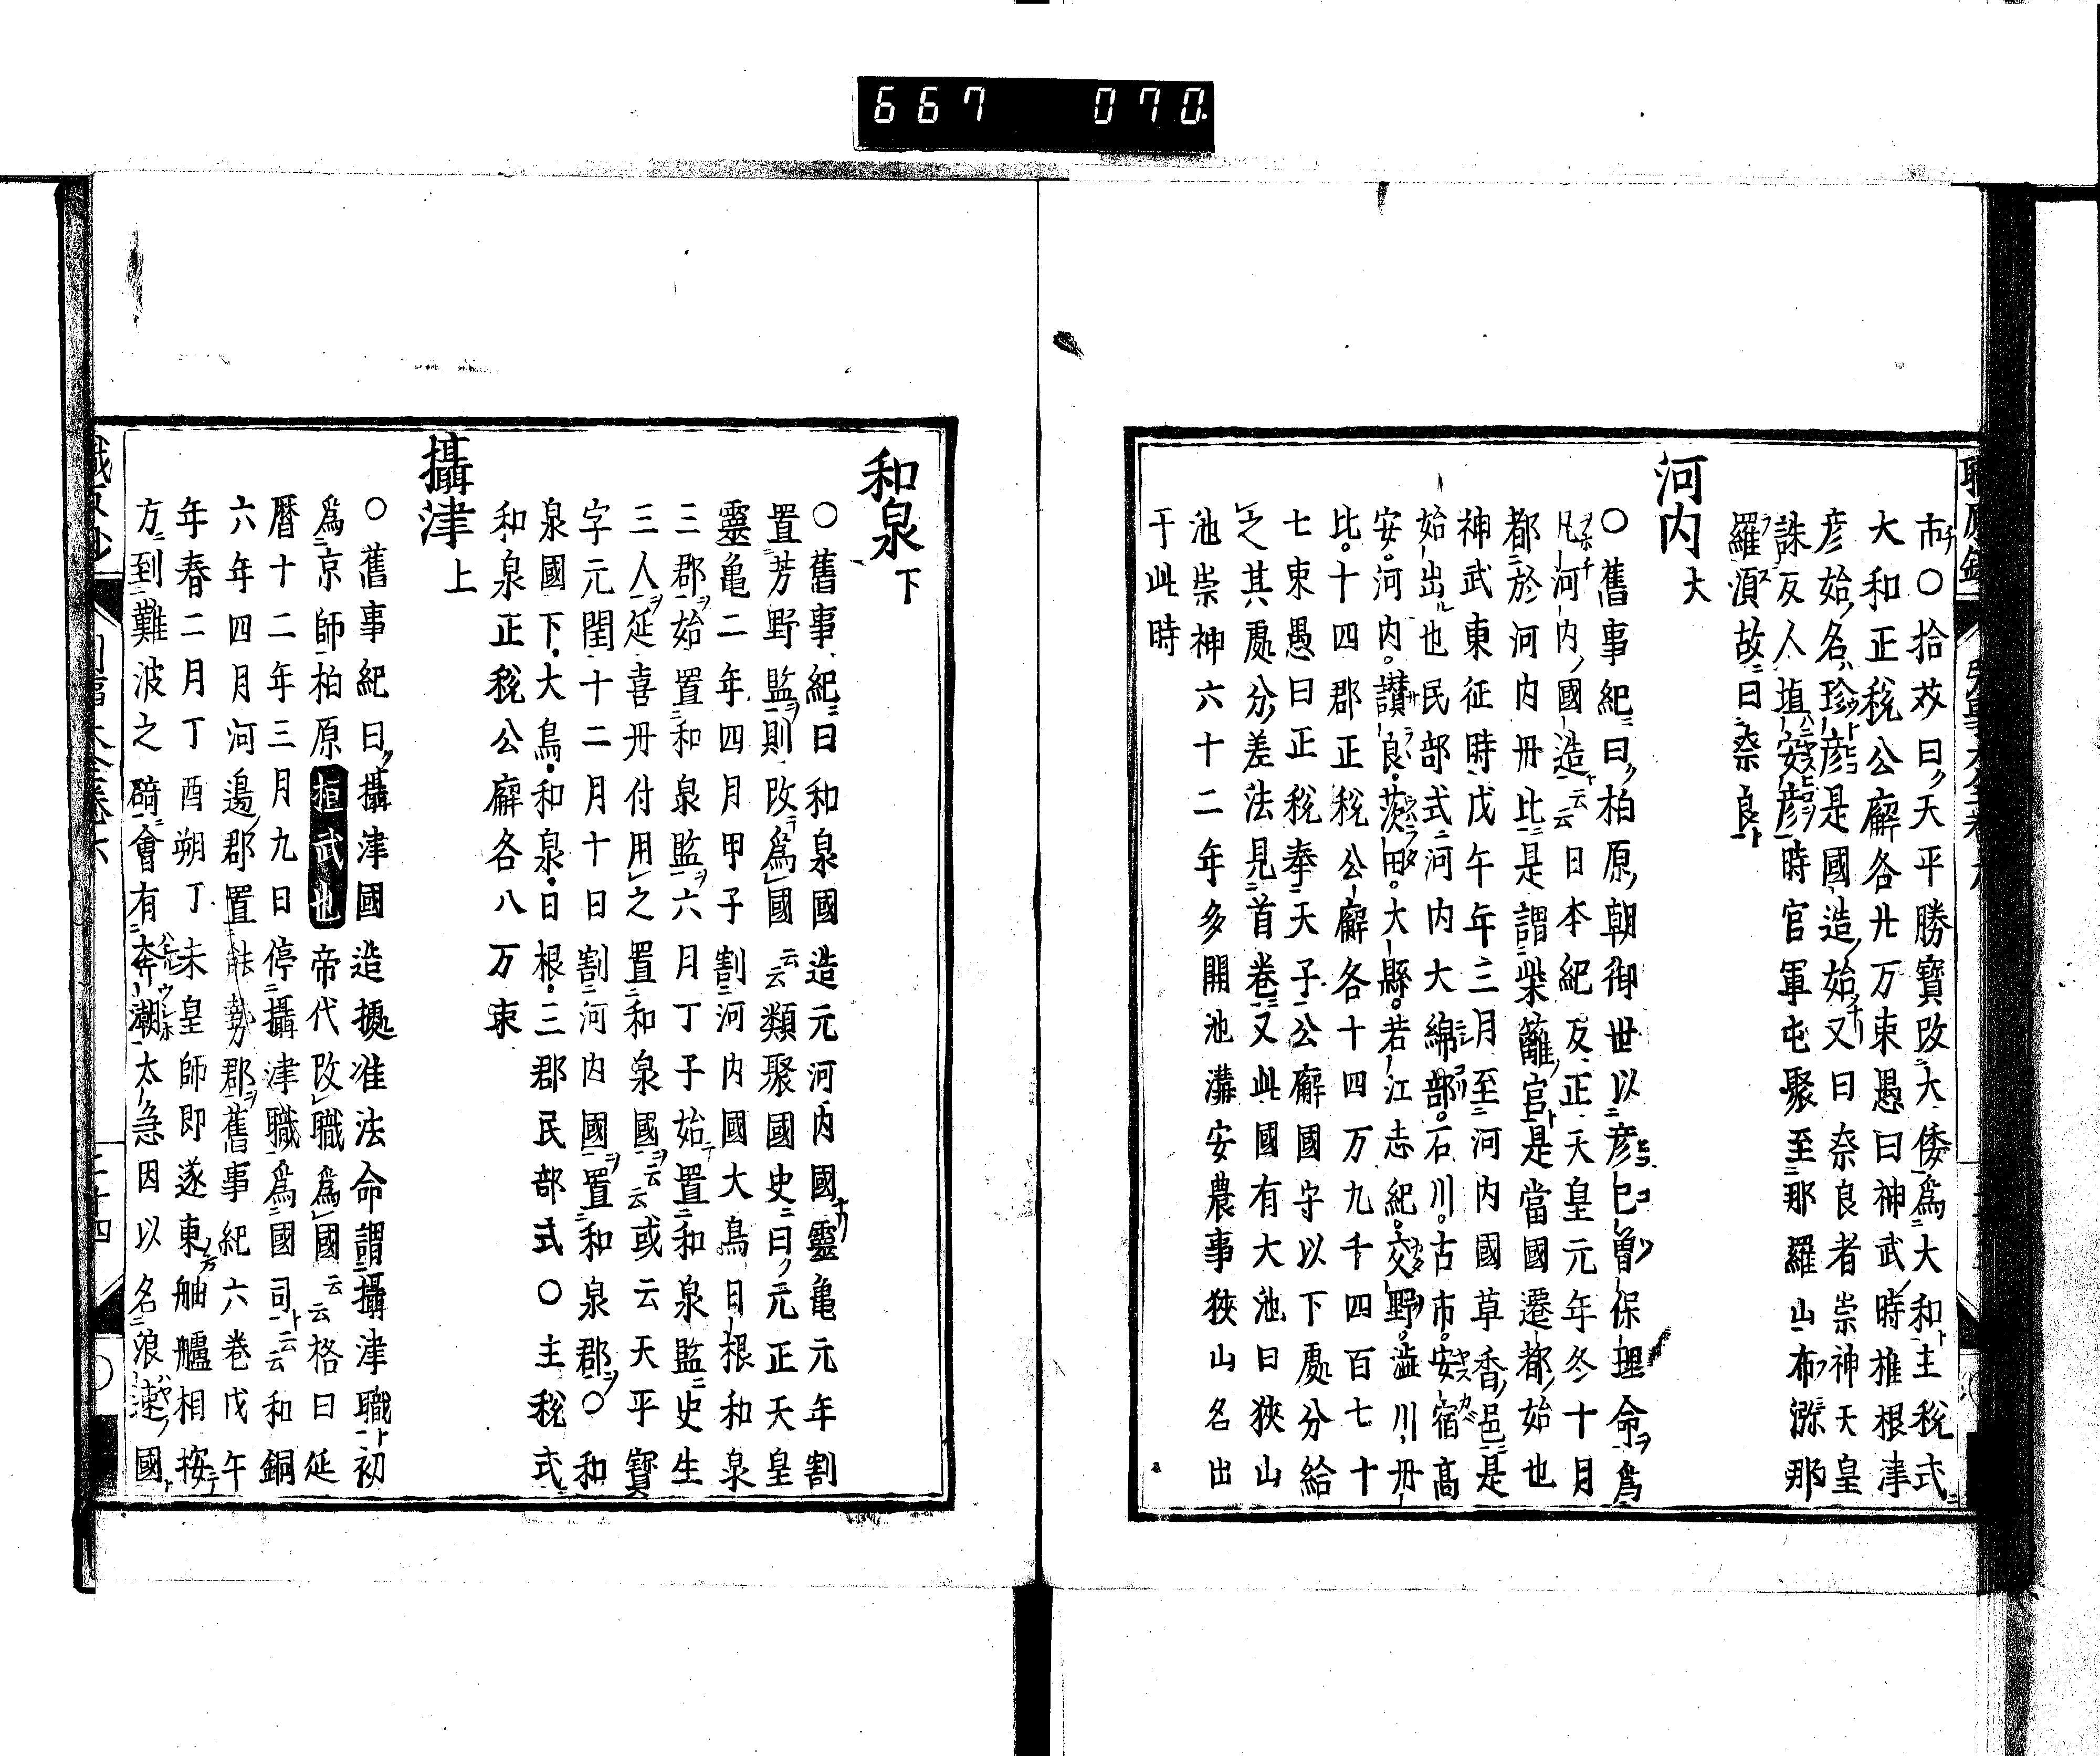 667 070
市○拾芥曰天平勝寶改大倭爲大和主税式
大和正税公廨各廿万束愚曰神武時椎根津
彦始名珍彦是國造始又曰奈良者崇神天皇
誅反人埴安彦時官軍屯聚至那羅山布漲那
羅湏故曰奈良
河内大
○舊事紀曰柏原朝御世以彦己曽保理命爲
凡河内國造云云日本紀反正天皇元年冬十月
都於河内丹比是謂柴籬宮是當國遷都始也
神武東征時戊午年三月至河内國草香邑是
始出也民部式河内大綿部石川古市安宿髙
安河内讃良茨田大縣若江志紀交野澁川丹
比十四郡正税公廨各十四万九千四百七十
七束愚曰正税奉天子公廨國守以下處分給
之其處分差法見首卷又此國有大池曰狹山
池崇神六十二年多開池溝安農事狹山名出
于此時
和泉下
○舊事紀曰和泉國造元河内國靈亀元年割
置芳野監則改爲國云云類聚國史曰元正天皇
靈亀二年四月甲子割河内國大鳥日根和泉
三郡始置和泉監六月丁子始置和泉監史生
三人延喜丹付用之置和泉國云云或云天平寶
字元閏十二月十日割河内國置和泉郡○和
泉國下大鳥和泉日根三郡民部式○主税式
和泉正税公廨各八万束
攝津上
○舊事紀曰攝津國造擾准法命謂攝津職初
爲京師柏原桓武也帝代改職爲國云云格曰延
暦十二年三月九日停攝津職爲國司云云和銅
六年四月河邉郡置能勢郡舊事紀六巻戊午
年春二月丁酉朔丁未皇師即遂東舳艫相按
方到難波之碕會有奔潮太急因以名浪速國